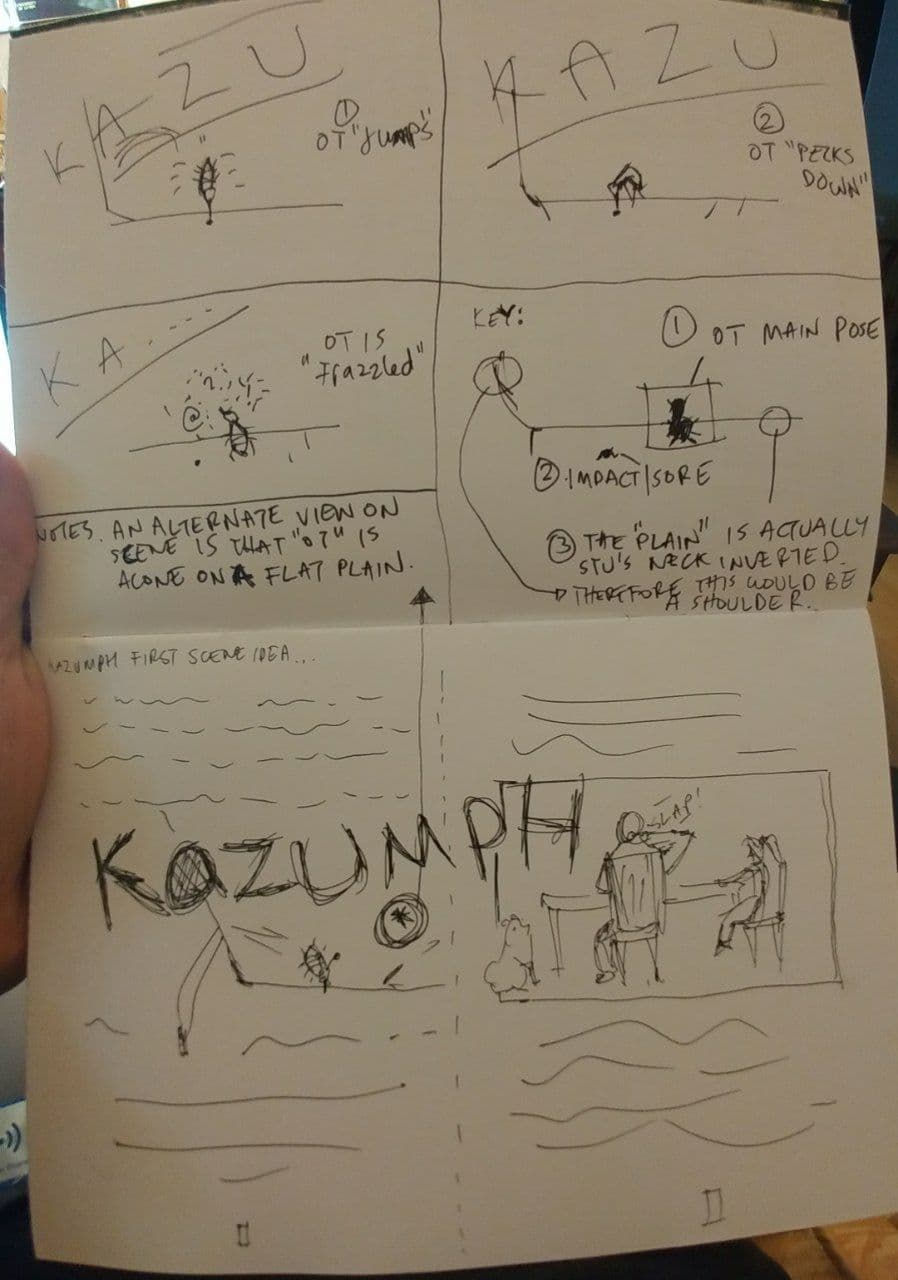 KAZU
①
OT "JUMPS"
KAZU
②
OT "PERKS
DOWN"
KA
OT IS
"Frazzled"
KEY:
① OT MAIN POSE
② IMPACT/SORE
③ THE "PLAIN" IS ACTUALLY
STU'S NECK INVERTED.
THEREFORE THIS WOULD BE
A SHOULDER.
NOTES. AN ALTERNATE VIEW ON
SCENE IS THAT "OT" IS
ALONE ON A FLAT PLAIN.
KAZUMPH FIRST SCENE IDEA...
KaZUMPH
SLAP!